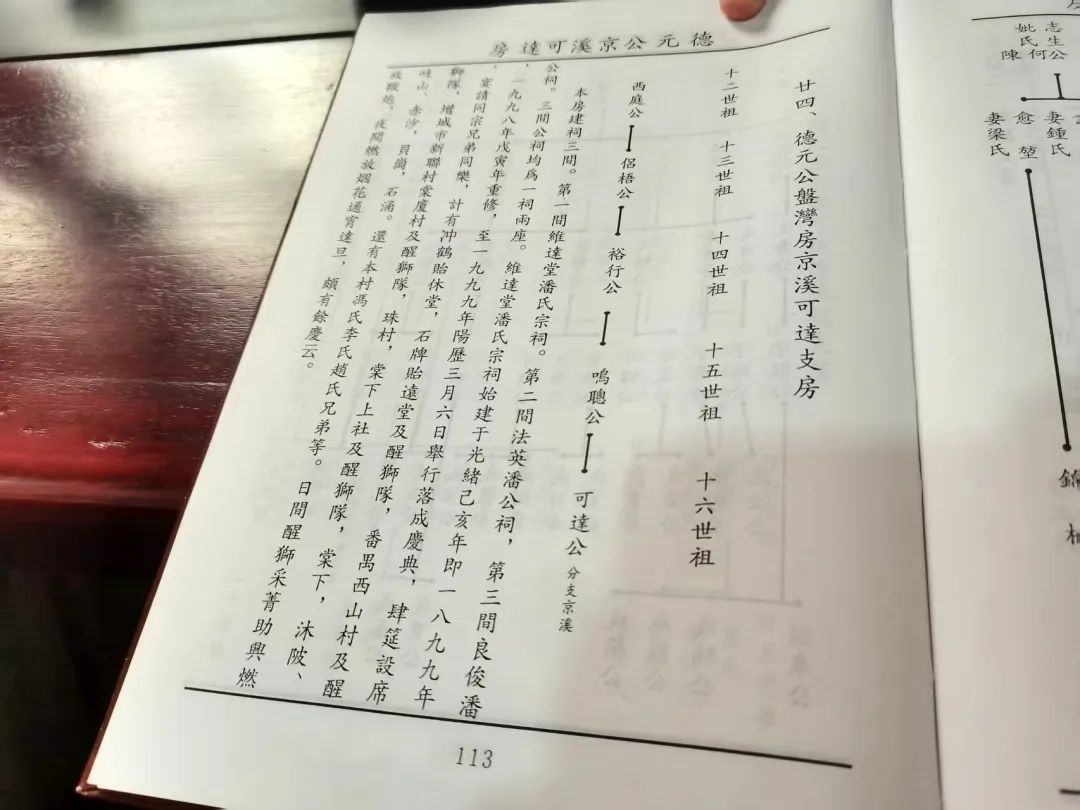 志生公
妻鍾氏
愈堃
妻梁氏
德元公京溪可達房
廿四、德元公盤灣房京溪可達支房
十二世祖 十三世祖 十四世祖 十五世祖 十六世祖
西庭公 侶梧公 裕行公 鳴聰公 可達公 分支京溪
本房建祠三間。第一間維達堂潘氏宗祠。第二間法英潘公祠,第三間良俊潘
公祠。三間公祠均爲一祠兩座。維達堂潘氏宗祠始建于光緒己亥年即一八九九年
,一九九八年戊寅年重修,至一九九九年陽歷三月六日舉行落成慶典,肆筵設席
,宴請同宗兄弟同樂,計有冲鶴貽休堂,石牌貽遠堂及醒獅隊,番禺西山村及醒
獅隊,增城市新聯村棠廈村及醒獅隊,珠村,棠下上社及醒獅隊,棠下,沐陂、
岐山、赤沙,貝崗,石涌。還有本村馮氏李氏趙氏兄弟等。日間醒獅采菁助興燃
放鞭炮,夜間燃放烟花通宵達旦,頗有餘慶云。
113